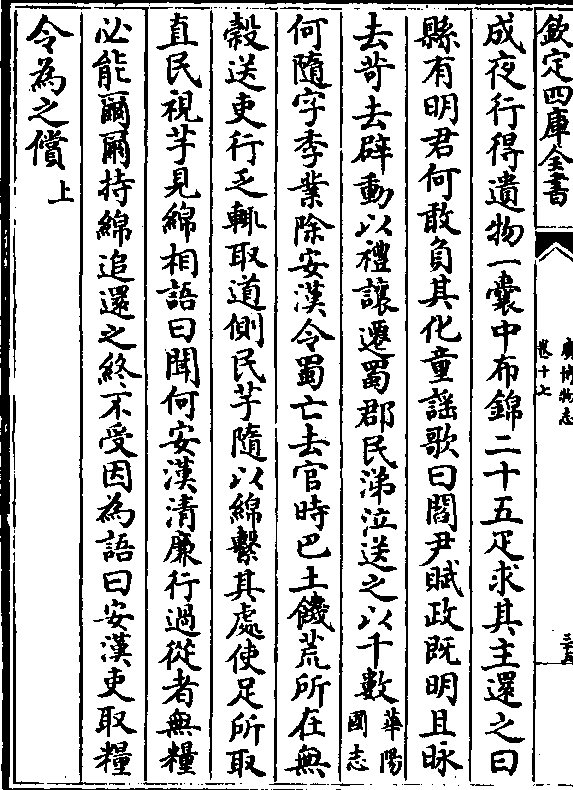 欽定四庫全書
廣博物志
卷十七
成夜行得遺物一囊中布錦二十五疋求其主還之曰
縣有明君何敢負其化童謡歌曰閻尹賦政既明且昹
去苛去辟動以禮讓遷蜀郡民涕泣送之以千數華陽國志
何隨字季業除安漢令蜀亡去官時巴土饑荒所在無
穀送吏行乏輒取道側民芋隨以綿繫其處使足所取
直民視芋見綿相語曰聞何安漢清廉行過從者無糧
必能爾爾持綿追還之終不受因為語曰安漢吏取糧
令為之償上